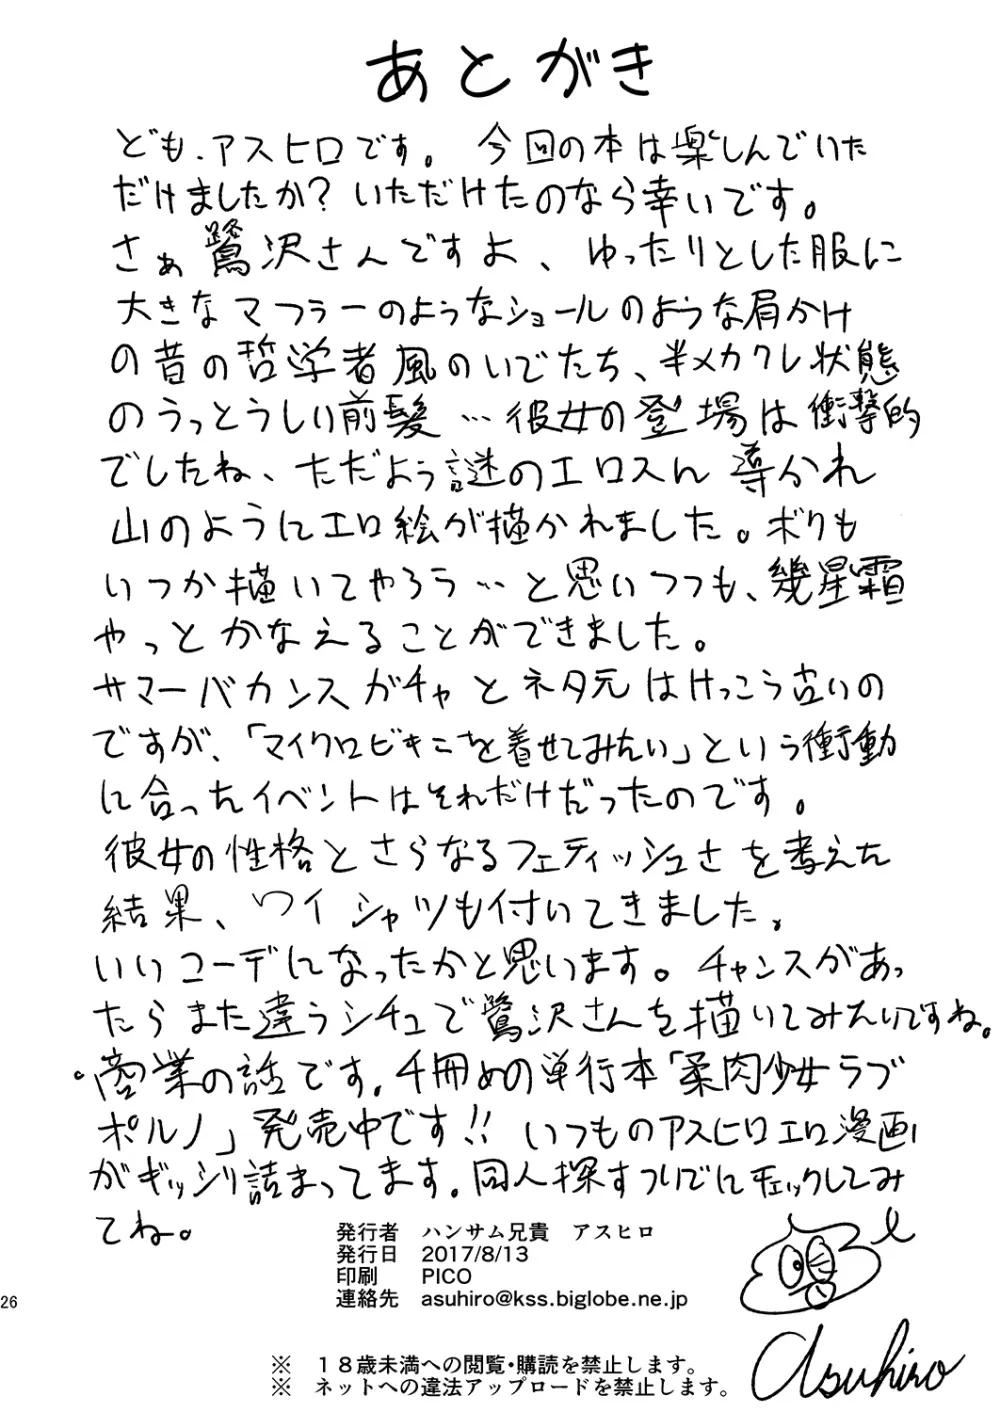 あとがき
ども、アスヒロです。今回の本は楽しんでいた
だけましたか？いただけたのなら幸いです。
さぁ鷺沢さんですよ、ゆったりとした服に
大きなマフラーのようなショールのような肩かけ
の昔の哲学者風のいでたち、半メカクレ状態
のうっとうしい前髪…彼女の登場は衝撃的
でしたね、ただよう謎のエロスん導かれ
山のようにエロ絵が描かれました。ボクも
いつか描いてやろう…と思いつつも、幾星霜
やっとかなえることができました。
サマーバカンスガチャとネタ元はけっこう古いの
ですが、「マイクロビキニを着せてみたい」という衝動
に合ったイベントはそれだけだったのです。
彼女の性格とさらなるフェティッシュさを考えた
結果、ワイシャツも付いてきました。
いいコーデになったかと思います。チャンスがあっ
たらまた違うシチュで鷺沢さんを描いてみたいですね。
・商業の話です。4冊めの単行本「柔肉少女ラブ
ポルノ」発売中です!!いつものアスヒロエロ漫画
がギッシリ詰まってます。同人探すついでにチェックしてみ
てね。
発行者　ハンサム兄貴　アスヒロ
発行日　2017/8/13
印刷　PICO
連絡先　asuhiro@kss.biglobe.ne.jp
26
※　１８歳未満への閲覧・購読を禁止します。
※　ネットへの違法アップロードを禁止します。
Asuhiro